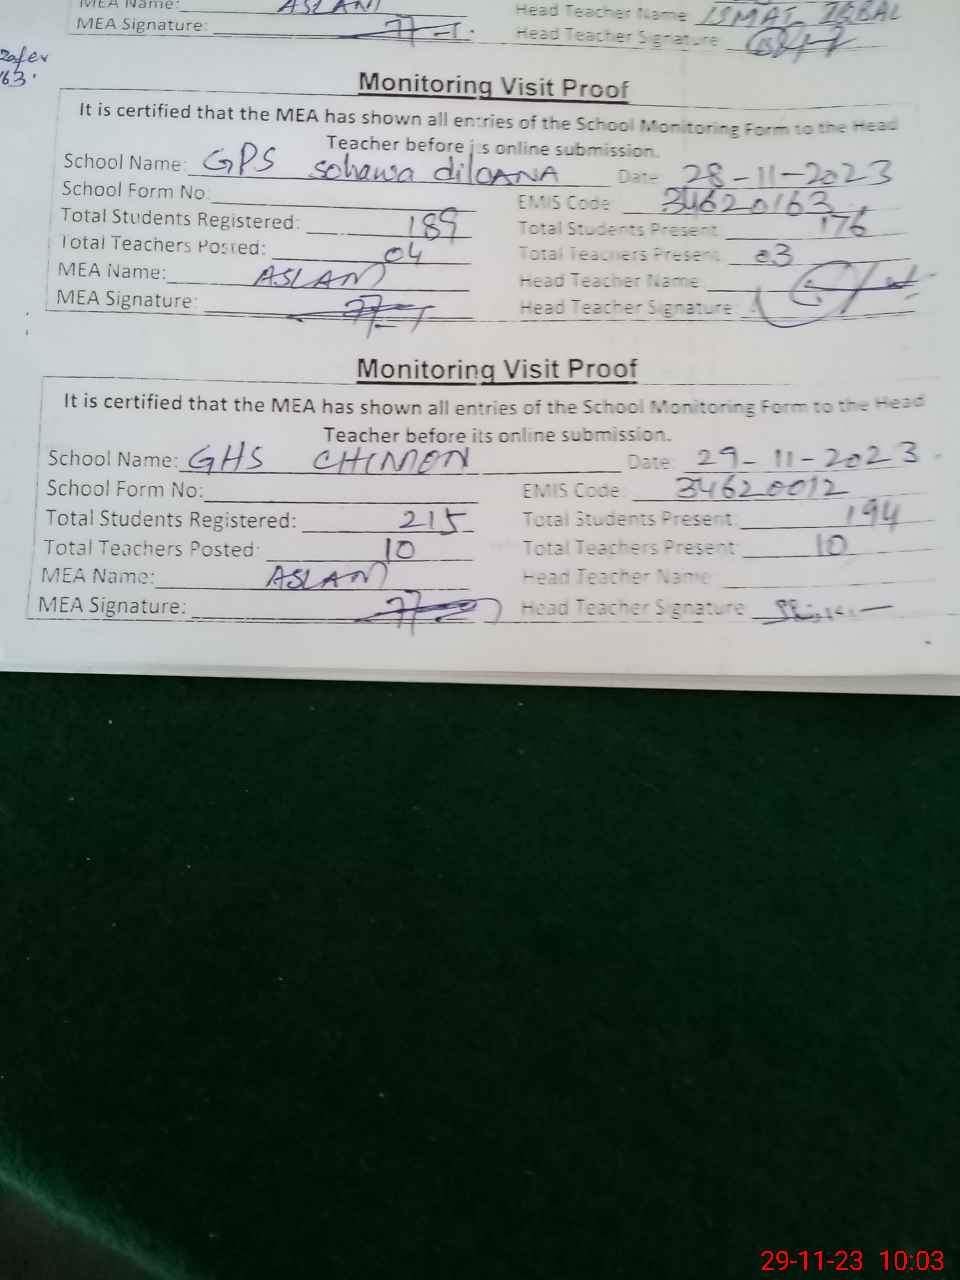 MEA Name: ASLAM Head Teacher Name ISMAT IQBAL
MEA Signature: Head Teacher Signature
zafer
163.
Monitoring Visit Proof
It is certified that the MEA has shown all entries of the School Monitoring Form to the Head
Teacher before its online submission.
School Name: GPS sohawa diloANA Date 28-11-2023
School Form No EMIS Code 34620163
Total Students Registered: 189 Total Students Present 176
Total Teachers Posted: 04 Total Teachers Present 03
MEA Name: ASLAM Head Teacher Name
MEA Signature: Head Teacher Signature
Monitoring Visit Proof
It is certified that the MEA has shown all entries of the School Monitoring Form to the Head
Teacher before its online submission.
School Name: GHS CHIMON Date 29-11-2023
School Form No: EMIS Code: 34620012
Total Students Registered: 215 Total Students Present: 194
Total Teachers Posted: 10 Total Teachers Present: 10
MEA Name: ASLAM Head Teacher Name
MEA Signature: Head Teacher Signature
29-11-23 10:03